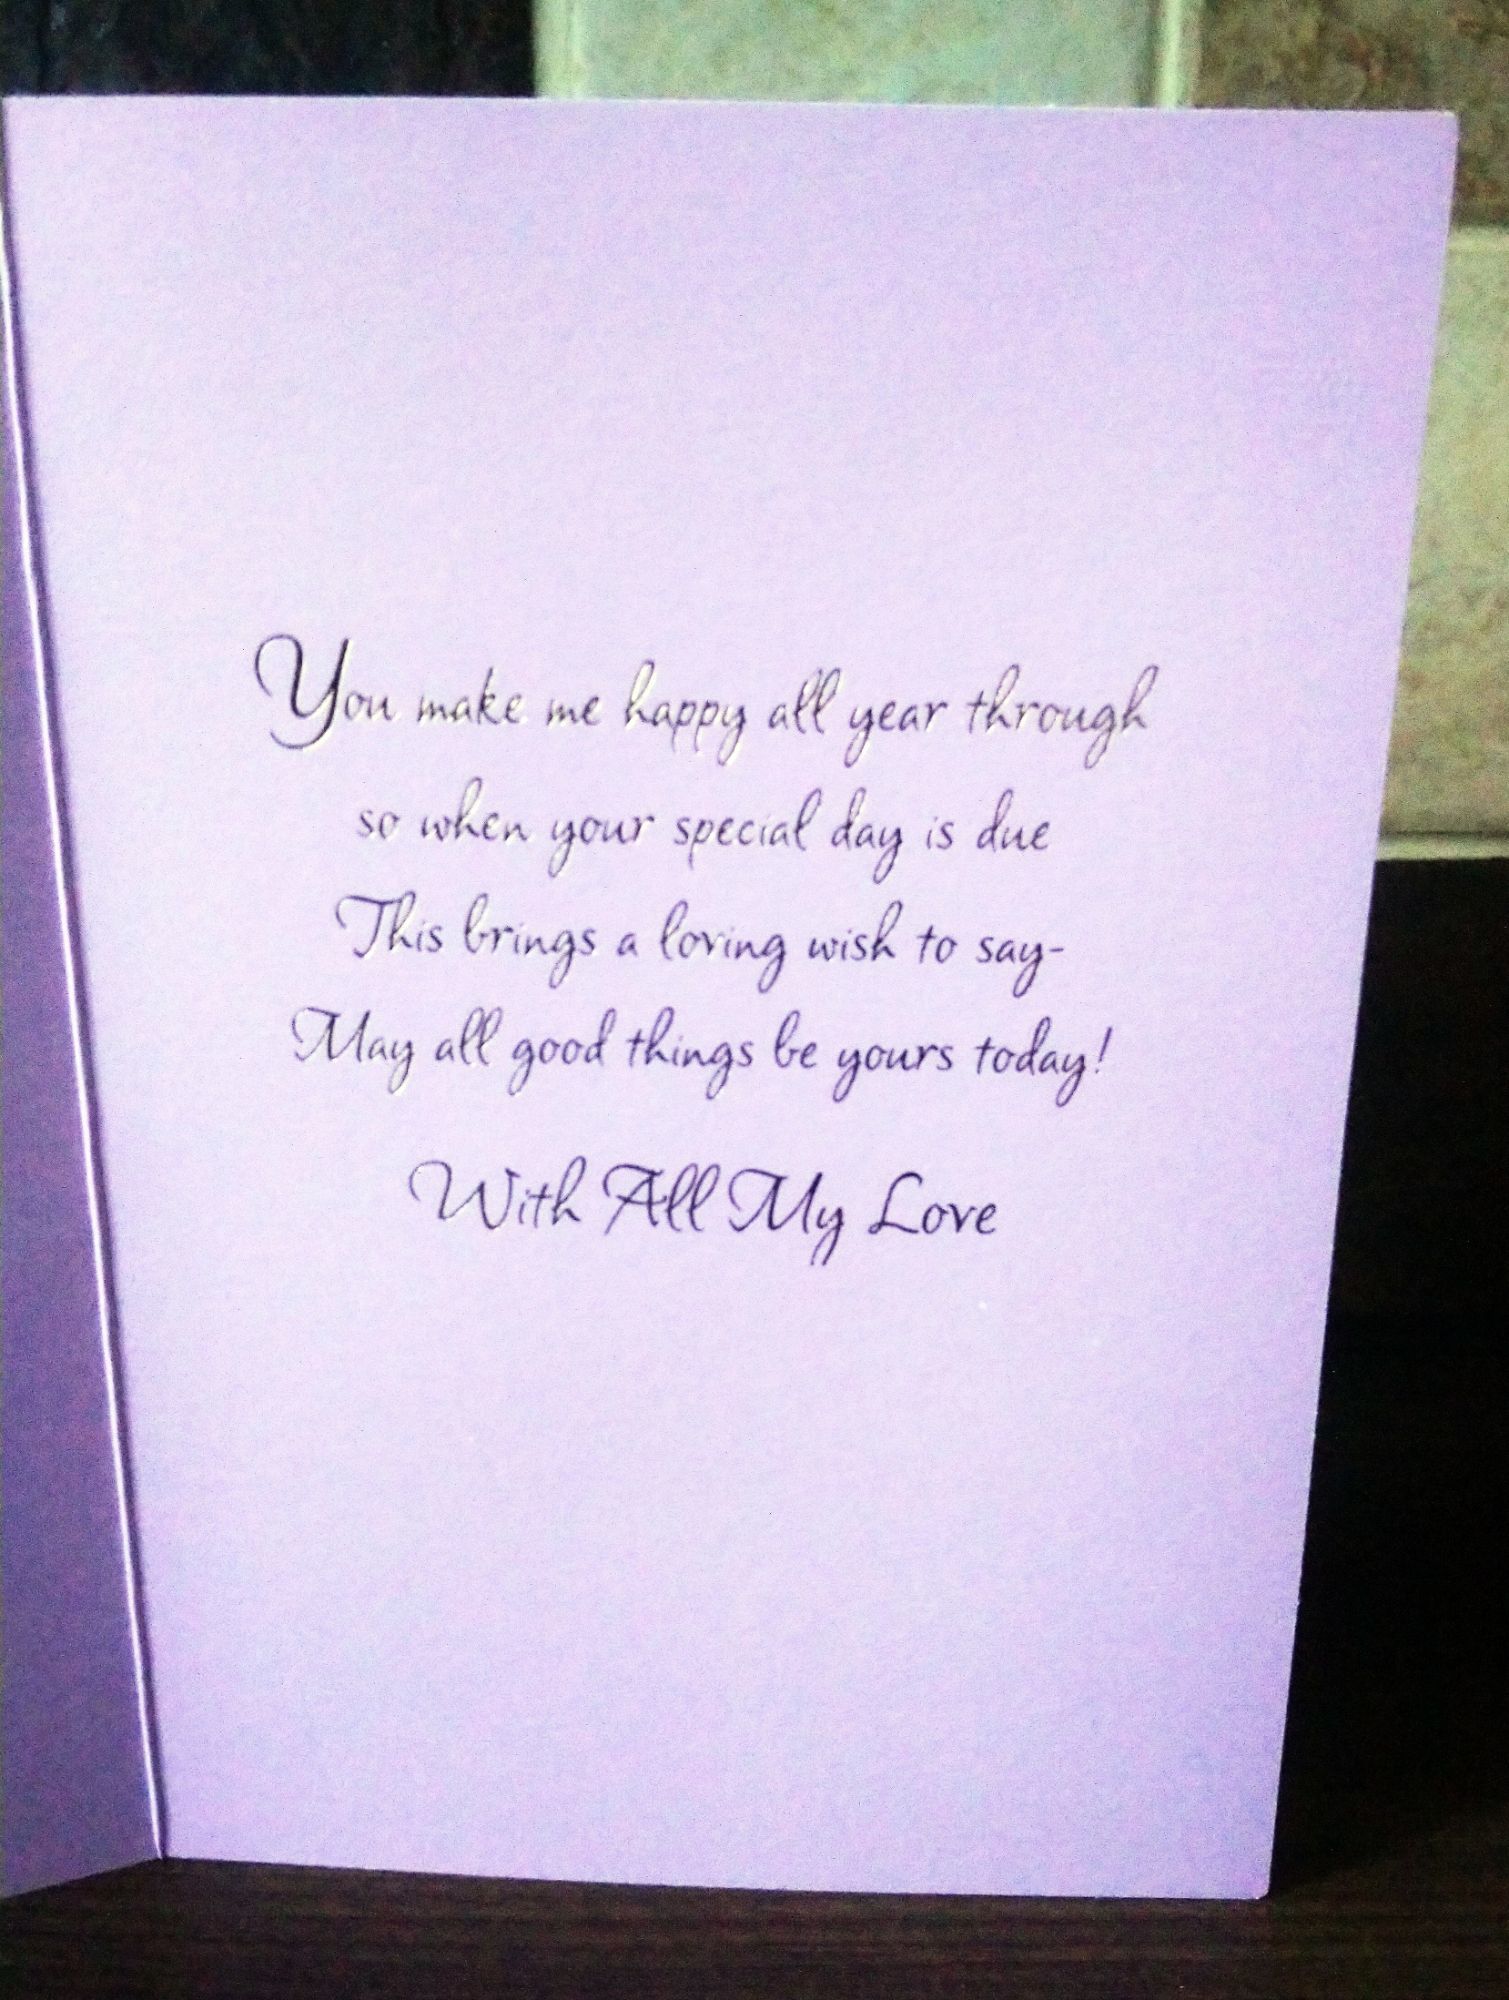 You make me happy all year through
so when your special day is due
This brings a loving wish to say-
May all good things be yours today!
With All My Love